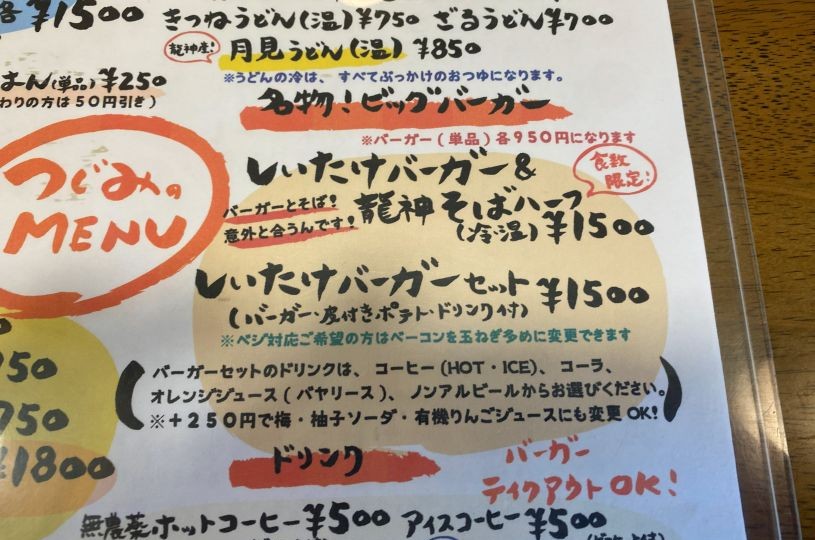 各¥1500
きつねうどん(温)¥750 ざるうどん¥700
龍神産! 月見うどん(温) ¥850
※うどんの冷は、すべてぶっかけのおつゆになります。
はん(単品)¥250
わりの方は50円引き)
名物!ビッグバーガー
※バーガー(単品)各950円になります
つぐみの
MENU
しいたけバーガー&
食数
限定!
バーガーとそば!
意外と合うんです!
龍神そばハーフ
(冷温)¥1500
しいたけバーガーセット ¥1500
(バーガー・皮付きポテト・ドリンク付)
※ベジ対応ご希望の方はベーコンを玉ねぎ多めに変更できます
(バーガーセットのドリンクは、コーヒー(HOT・ICE)、コーラ、
オレンジジュース(バヤリース)、ノンアルビールからお選びください。
※+250円で梅・柚子ソーダ・有機りんごジュースにも変更OK!)
50
750
¥1800
ドリンク
バーガー
テイクアウトOK!
無農薬ホットコーヒー¥500 アイスコーヒー¥500